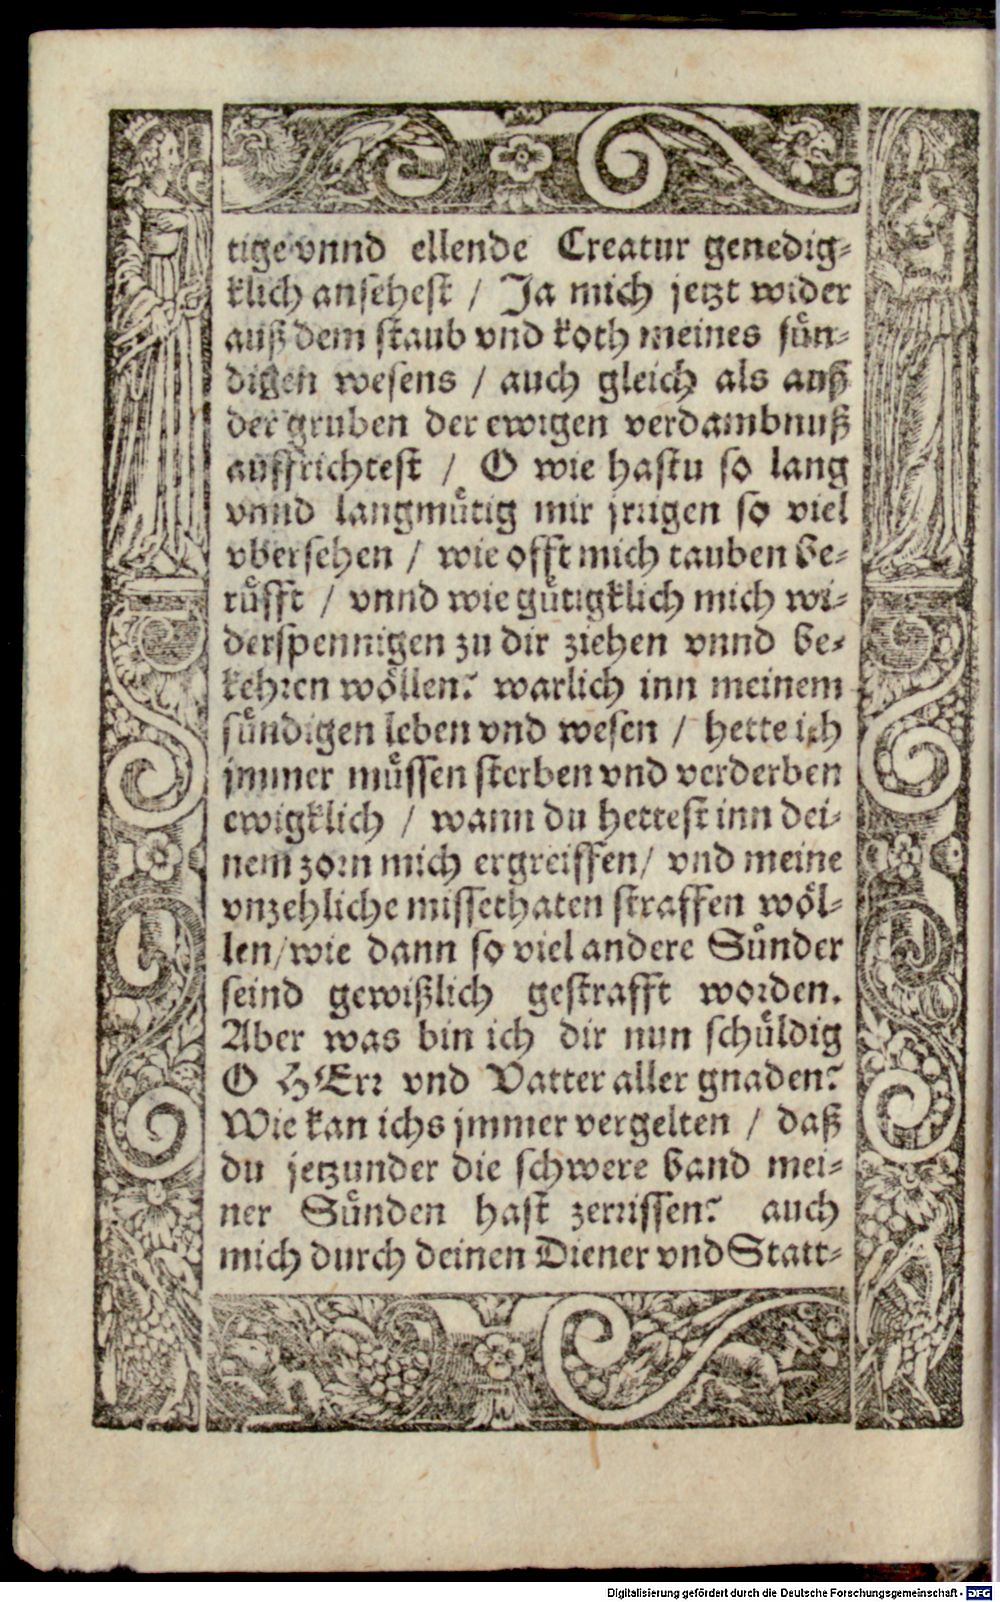 tige vnnd ellende Creatur genedig-
klich ansehest / Ja mich jetzt wider
auß dem staub vnd koth meines sün-
digen wesens / auch gleich als auß
der gruben der ewigen verdambnuß
auffrichtest / O wie hastu so lang
vnnd langmütig mir jrrigen so viel
vbersehen / wie offt mich tauben be-
rüfft / vnnd wie gütigklich mich wi-
derspennigen zu dir ziehen vnnd be-
kehren wöllen? warlich inn meinem
sündigen leben vnd wesen / hette ich
jmmer müssen sterben vnd verderben
ewigklich / wann du hettest inn dei-
nem zorn mich ergreiffen / vnd meine
vnzehliche missethaten straffen wöl-
len / wie dann so viel andere Sünder
seind gewißlich gestrafft worden.
Aber was bin ich dir nun schüldig
O HErr vnd Vatter aller gnaden?
Wie kan ichs jmmer vergelten / daß
du jetzunder die schwere band mei-
ner Sünden hast zerrissen? auch
mich durch deinen Diener vnd Statt-
Digitalisierung gefördert durch die Deutsche Forschungsgemeinschaft - DFG